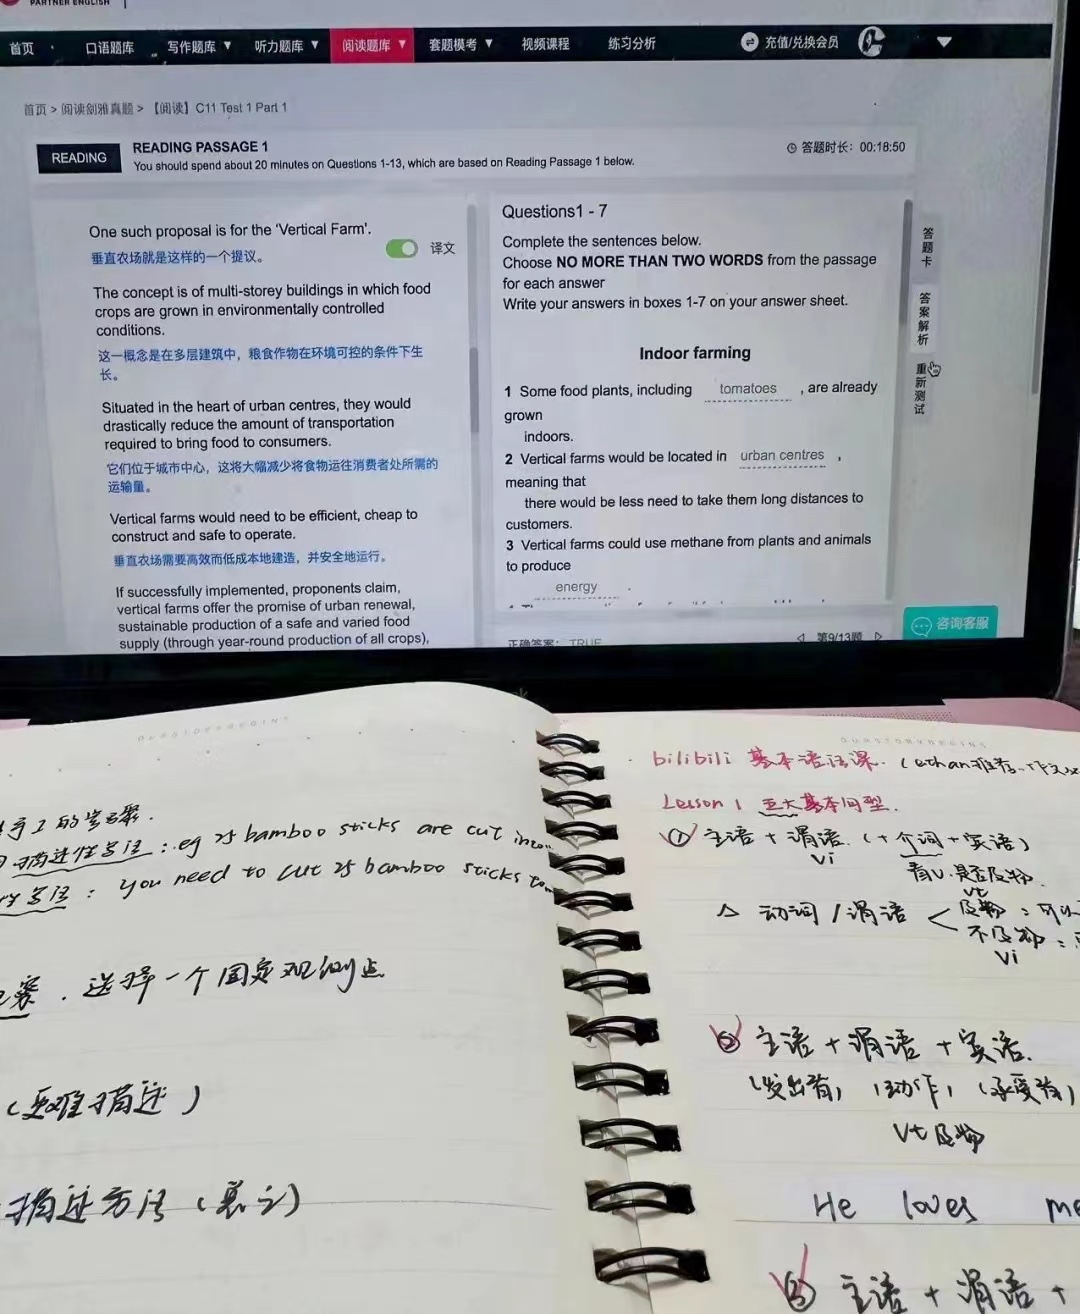 PARTNER ENGLISH
首页 口语题库 写作题库 ▼ 听力题库 ▼ 阅读题库 ▼ 套题模考 ▼ 视频课程 练习分析 充值/兑换会员
首页 > 阅读剑雅真题 > 【阅读】C11 Test 1 Part 1
READING
READING PASSAGE 1
You should spend about 20 minutes on Questions 1-13, which are based on Reading Passage 1 below.
答题时长：00:18:50
One such proposal is for the 'Vertical Farm'.
垂直农场就是这样的一个提议。
译文
The concept is of multi-storey buildings in which food
crops are grown in environmentally controlled
conditions.
这一概念是在多层建筑中，粮食作物在环境可控的条件下生
长。
Situated in the heart of urban centres, they would
drastically reduce the amount of transportation
required to bring food to consumers.
它们位于城市中心，这将大幅减少将食物运往消费者处所需的
运输量。
Vertical farms would need to be efficient, cheap to
construct and safe to operate.
垂直农场需要高效而低成本地建造，并安全地运行。
If successfully implemented, proponents claim,
vertical farms offer the promise of urban renewal,
sustainable production of a safe and varied food
supply (through year-round production of all crops),
Questions1 - 7
Complete the sentences below.
Choose NO MORE THAN TWO WORDS from the passage
for each answer
Write your answers in boxes 1-7 on your answer sheet.
Indoor farming
1 Some food plants, including tomatoes , are already
grown
indoors.
2 Vertical farms would be located in urban centres ,
meaning that
there would be less need to take them long distances to
customers.
3 Vertical farms could use methane from plants and animals
to produce
energy .
正确答案： TRUE
第9/13题
答题卡
答案解析
重新测试
咨询客服
描述性写法：eg 25 bamboo sticks are cut into
写法：you need to cut 25 bamboo sticks to
选择一个固定观测点
(更难描述)
描述方法（
bilibili 基本语法课.（ethan推荐
Lesson 1 五大基本句型.
① 主语 + 谓语.（+ 介词 + 宾语）
vi
看v.是否及物.
vt
△ 动词 / 谓语 < 及物：可以
不及物：
vi
② 主语 + 谓语 + 宾语.
（发出者） （动作） （承受者）
vt 及物
He loves me
③ 主语 + 谓语 +